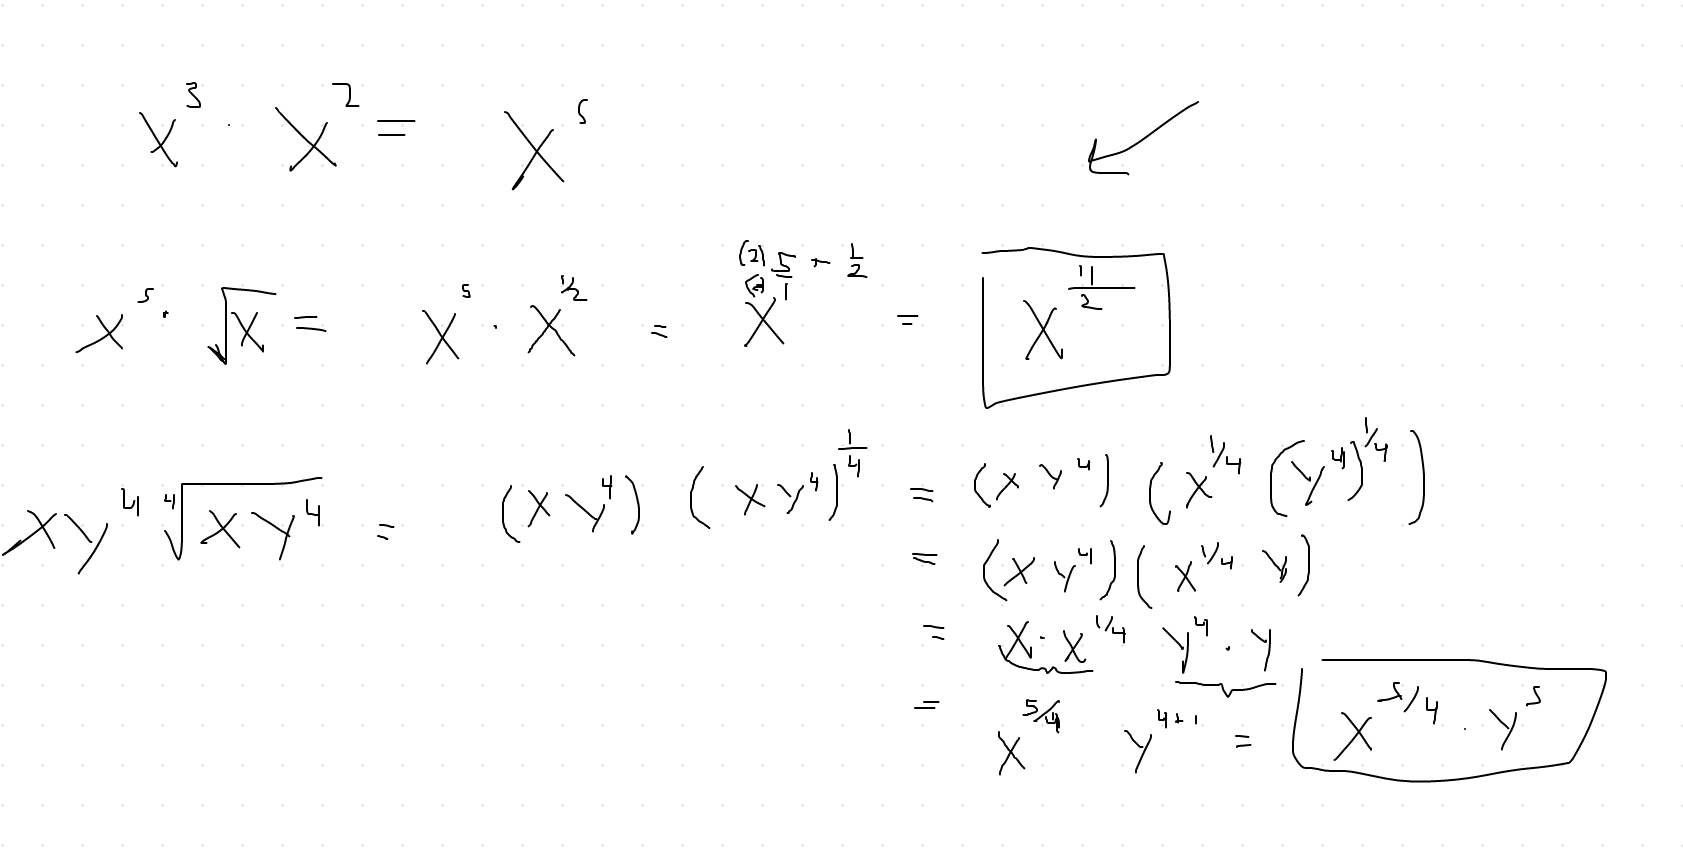 x³ · x² = x⁵
x⁵ · √x = x⁵ · x^(1/2) = x^((2)5/(2)1 + 1/2) = x^(11/2)
xy⁴ ∜(xy⁴) = (xy⁴)(xy⁴)^(1/4) = (xy⁴)(x^(1/4)(y⁴)^(1/4))
= (xy⁴)(x^(1/4) y)
= x · x^(1/4) y⁴ · y
= x^(5/4) y^(4+1) = x^(5/4) · y⁵